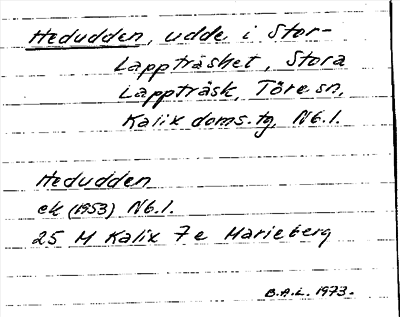 Hedudden, udde i Stor-
Lappträsket, Stora
Lappträsk, Töre sn,
Kalix doms. tg, Nb. l.
Hedudden
ek (1953) Nb. l.
25 M Kalix 7e Marieberg
B.A.L. 1973.